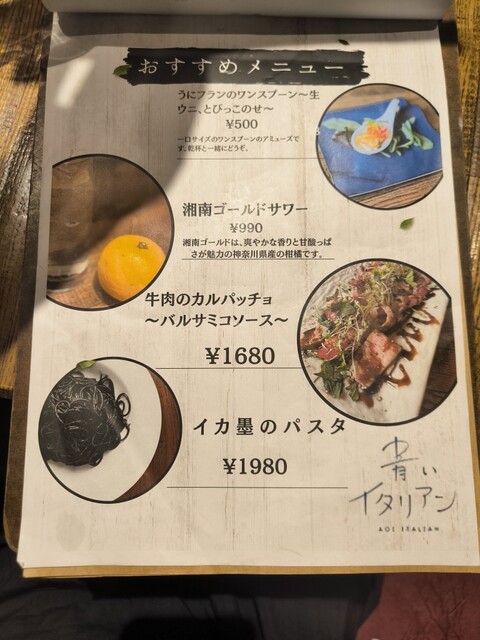 おすすめメニュー
うにフランのワンスプーン〜生
ウニ、とびっこのせ〜
¥500
一口サイズのワンスプーンのアミューズで
す。乾杯と一緒にどうぞ。
湘南ゴールドサワー
¥990
湘南ゴールドは、爽やかな香りと甘酸っぱ
さが魅力の神奈川県産の柑橘です。
牛肉のカルパッチョ
〜バルサミコソース〜
¥1680
イカ墨のパスタ
¥1980
青い
イタリアン
AOI ITALIAN